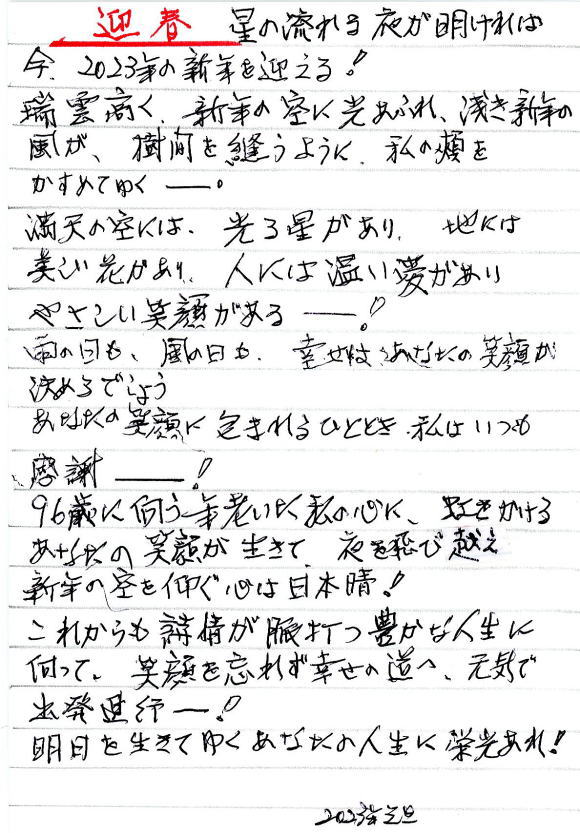 迎春 星の流れる夜が明ければ
今、2023年の新年を迎える!
瑞雲高く、新年の空に光あふれ、浅き新年の
風が、樹間を縫うように、私の頬を
かすめてゆく――。
満天の空には、光る星があり、地には
美しい花があり、人には温い愛があり
やさしい笑顔がある――!
雨の日も、風の日も、幸せは、あなたの笑顔が
決めるでしょう
あなたの笑顔に包まれるひととき、私はいつも
感謝――!
96歳に向う年老いた私の心に、虹をかける
あなたの笑顔が生きて、夜を飛び越え
新年の空を仰ぐ心は日本晴!
これからも詩情が脈打つ豊かな人生に
向って、笑顔を忘れず幸せの道へ、元気で
出発進行―!
明日を生きてゆくあなたの人生に栄光あれ!
2023年元旦